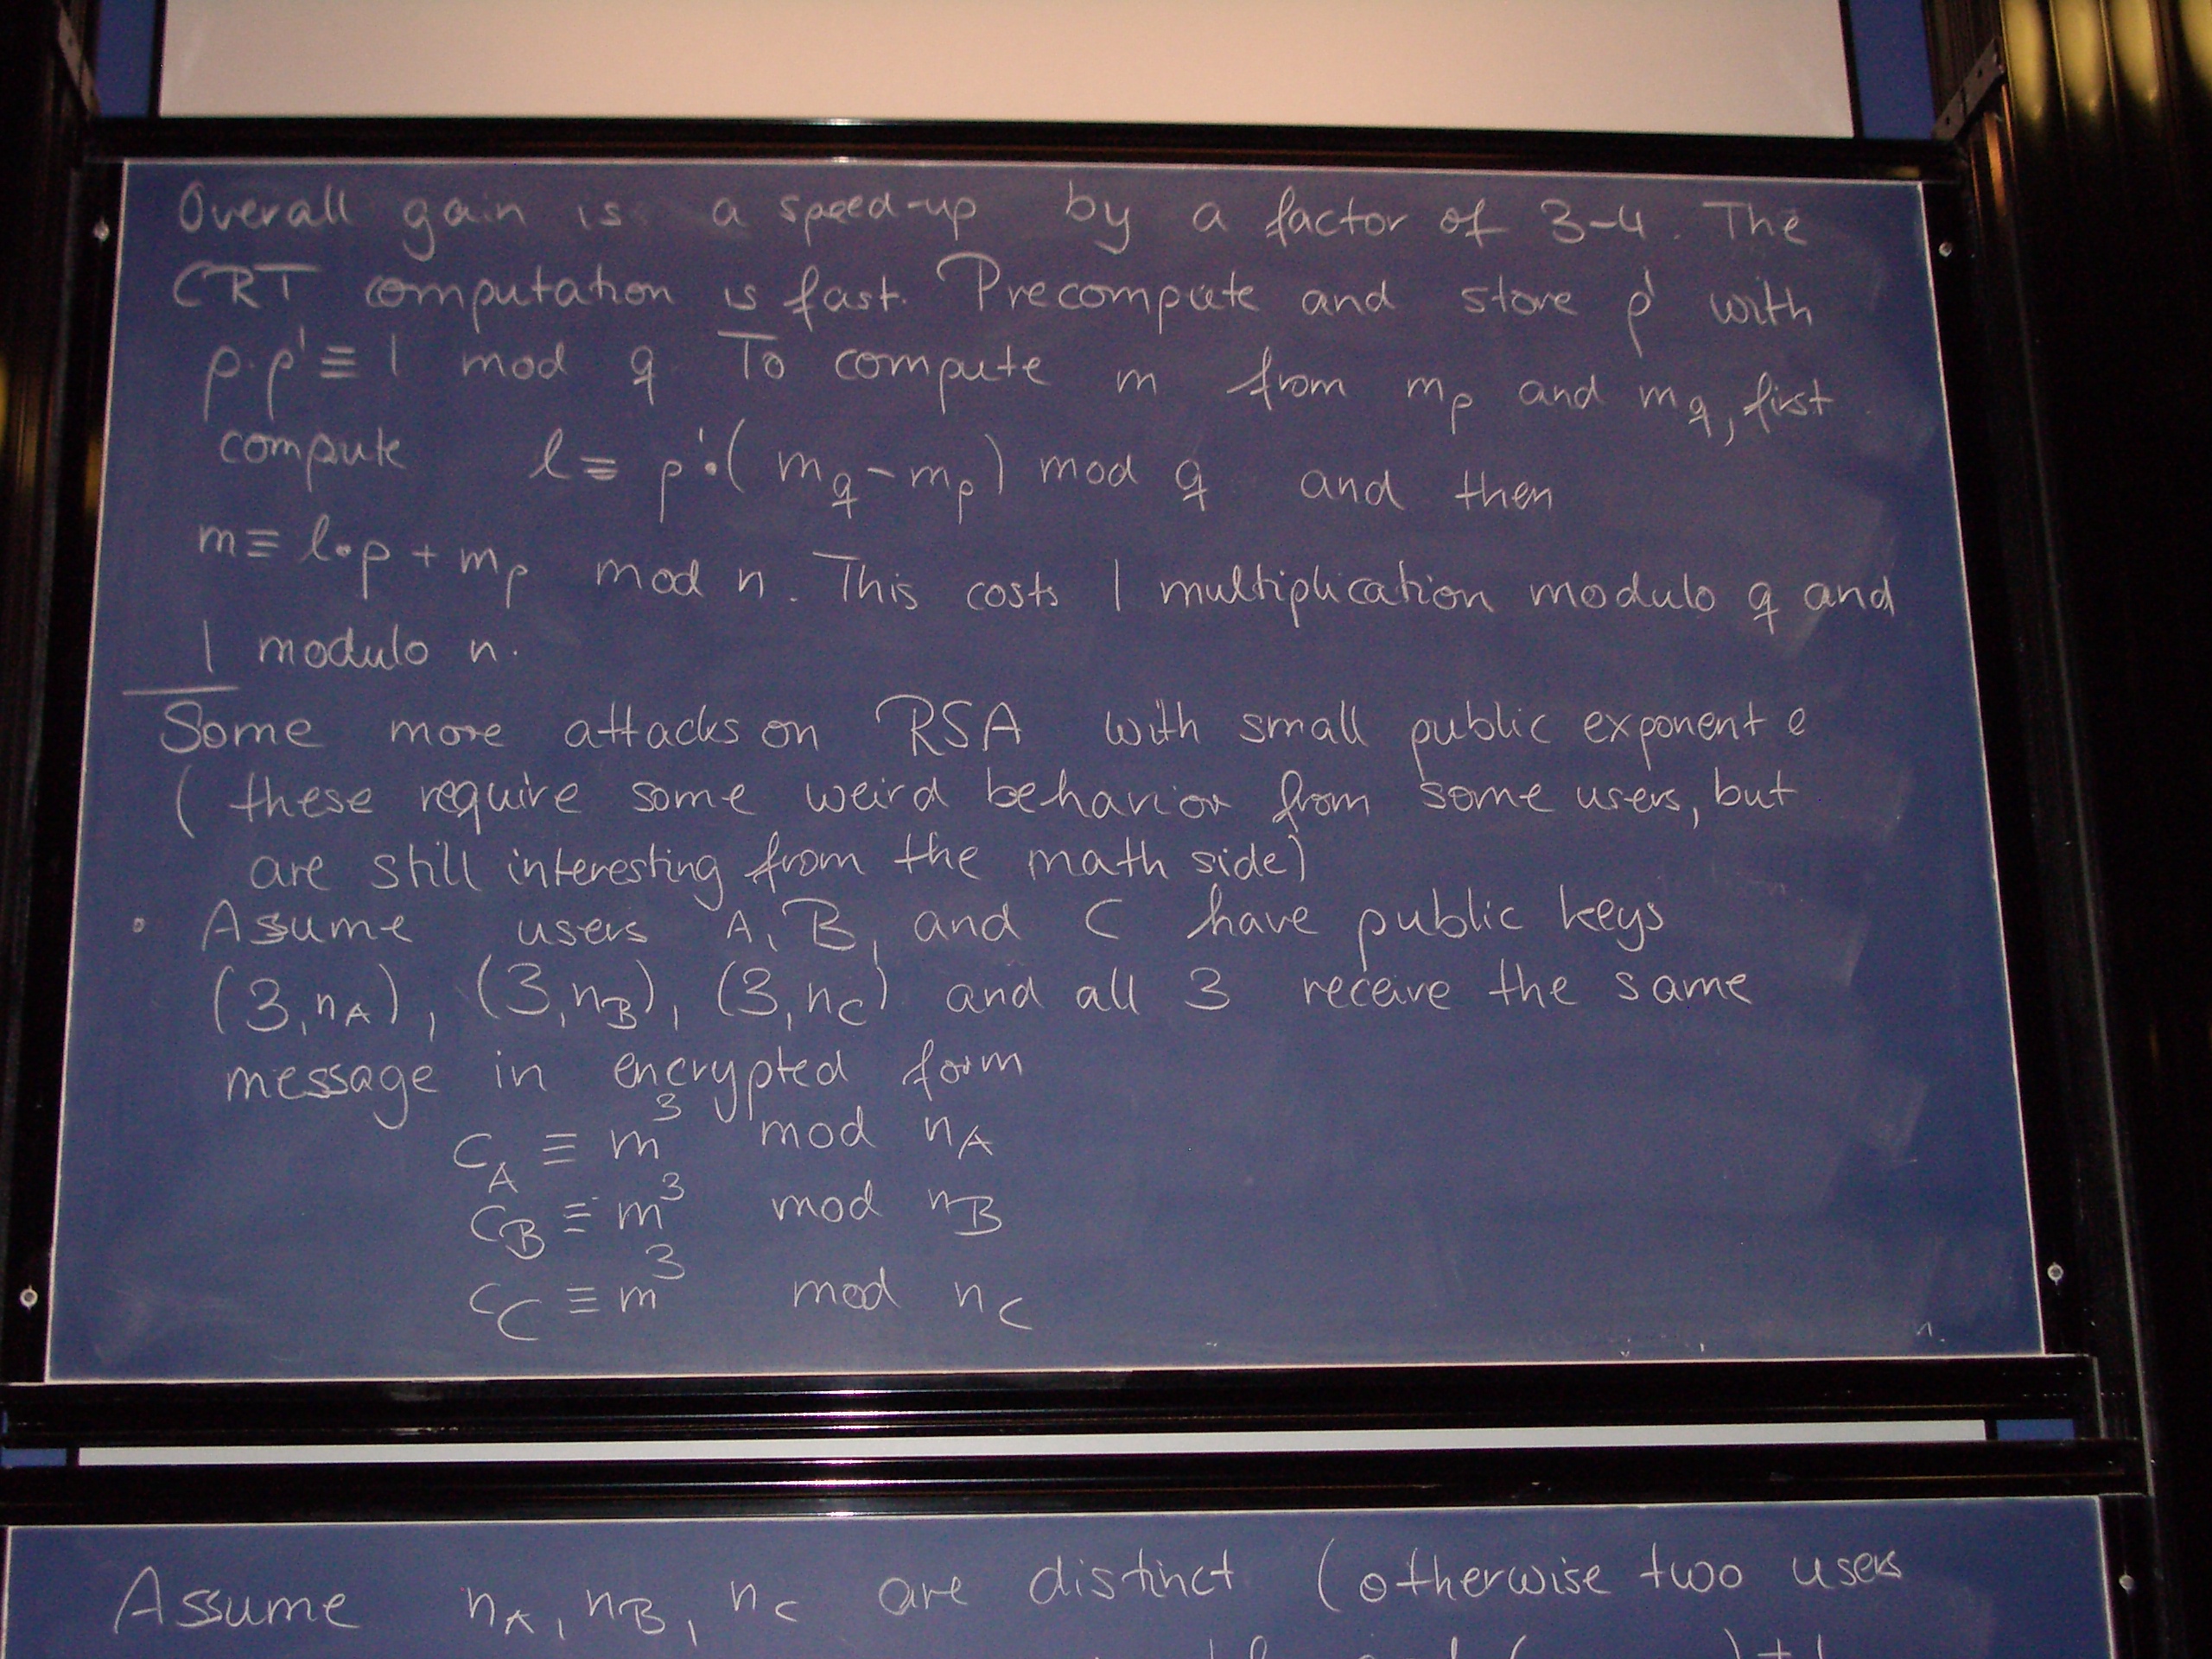 Overall gain is a speed-up by a factor of 3-4. The
CRT computation is fast. Precompute and store p' with
p·p' ≡ 1 mod q To compute m from m_p and m_q, first
compute l ≡ p'·(m_q - m_p) mod q and then
m ≡ l·p + m_p mod n. This costs 1 multiplication modulo q and
1 modulo n.
Some more attacks on RSA with small public exponent e
(these require some weird behavior from some users, but
are still interesting from the math side)
• Assume users A, B, and C have public keys
(3, n_A), (3, n_B), (3, n_C) and all 3 receive the same
message in encrypted form
c_A ≡ m^3 mod n_A
c_B ≡ m^3 mod n_B
c_C ≡ m^3 mod n_C
Assume n_A, n_B, n_C are distinct (otherwise two users